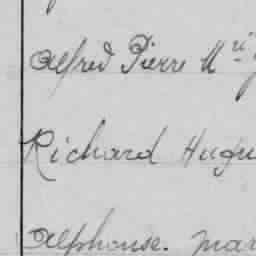 Alfred Pierre
Richard Hugu
Alphonse. mar